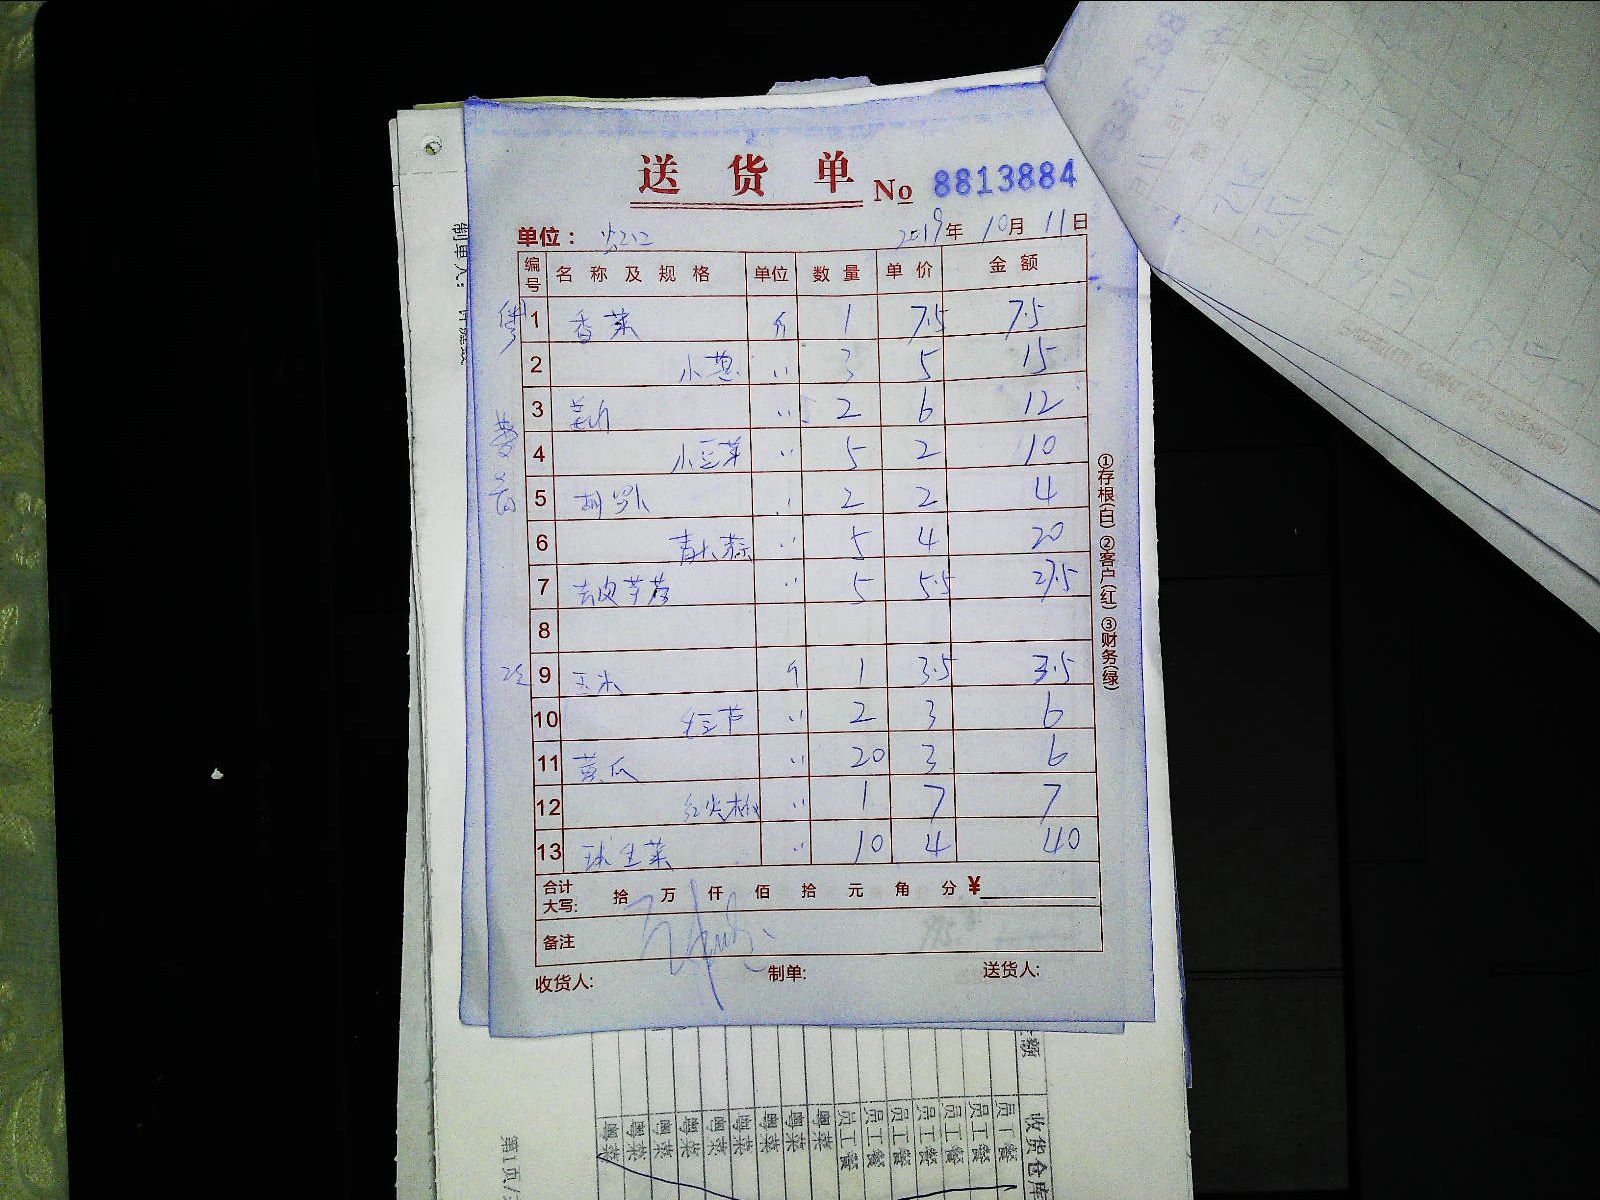 送 货 单 No 8813884
单位： 2019年 10月 11日
编号 名 称 及 规 格 单位 数 量 单 价 金 额
1 香菜 斤 1 7.5 7.5
2 小葱 〃 3 5 15
3 〃 2 6 12
4 小豆芽 〃 5 2 10
5 胡罗卜 〃 2 2 4
6 〃 5 4 20
7 去皮芋艿 〃 5 5.5 27.5
8
9 玉米 斤 1 3.5 3.5
10 〃 2 3 6
11 黄瓜 〃 20 3 6
12 红尖椒 〃 1 7 7
13 球生菜 〃 10 4 40
合计大写: 拾 万 仟 佰 拾 元 角 分 ¥
备注
收货人: 制单: 送货人:
①存根(白) ②客户(红) ③财务(绿)
制单人：
收货仓库
员工餐
员工餐
员工餐
员工餐
员工餐
员工餐
员工餐
粤菜
粤菜
粤菜
粤菜
粤菜
粤菜
粤菜
粤菜
第1页/